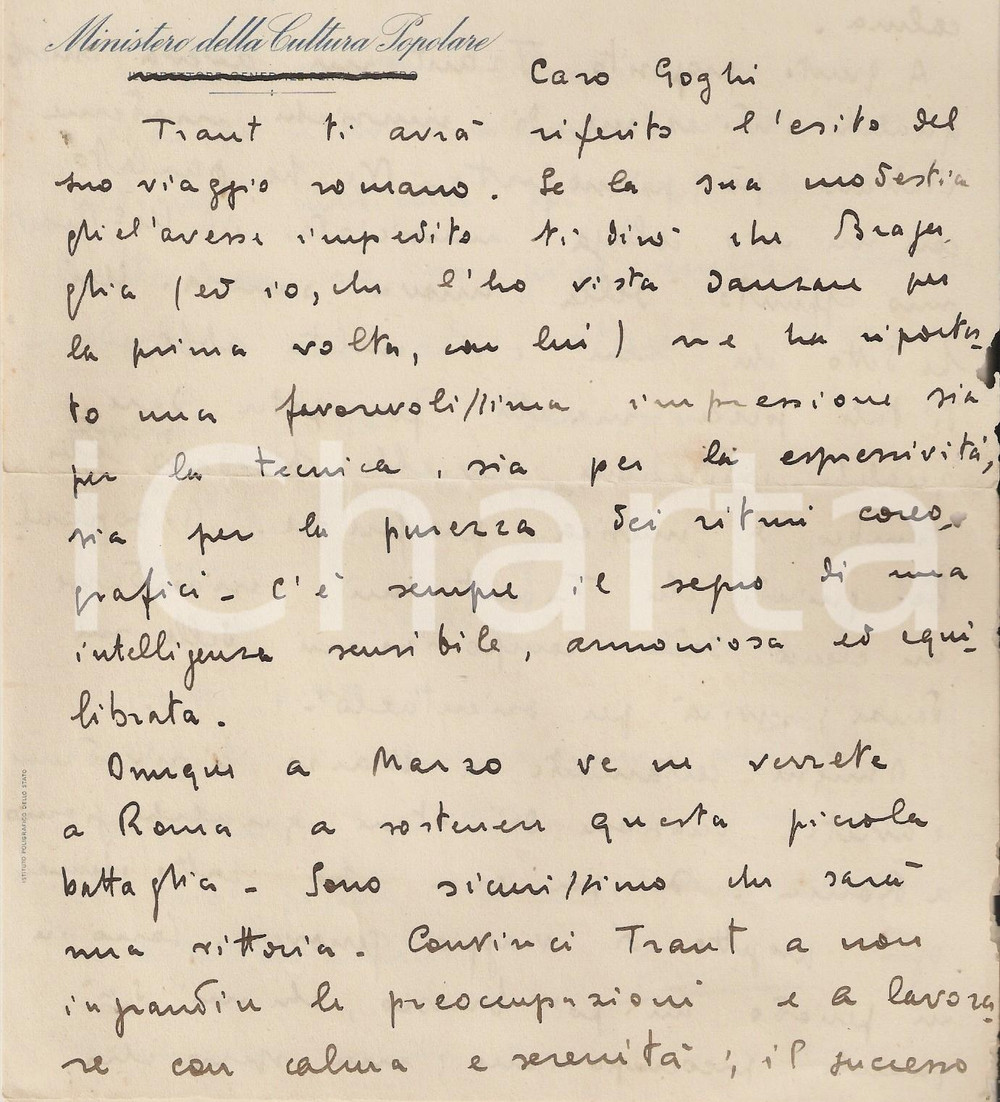 Ministero della Cultura Popolare
Caro Goghi
Traut ti avrà riferito l'esito del
suo viaggio romano. Se la sua modestia
gliel'avesse impedito ti dirò che Braga-
glia (ed io, che l'ho vista danzare per
la prima volta, con lui) ne ha riporta-
to una favorevolissima impressione sia
per la tecnica, sia per la espressività,
sia per la purezza dei ritmi coreo-
grafici - C'è sempre il segno di una
intelligenza sensibile, armoniosa ed equi-
librata.
Dunque a Marzo ve ne verrete
a Roma a sostenere questa piccola
battaglia - Sono sicurissimo che sarà
una vittoria. Convinci Traut a non
ingrandire le preoccupazioni e a lavora-
re con calma e serenità; il successo
ISTITUTO POLIGRAFICO DELLO STATO
iCharta